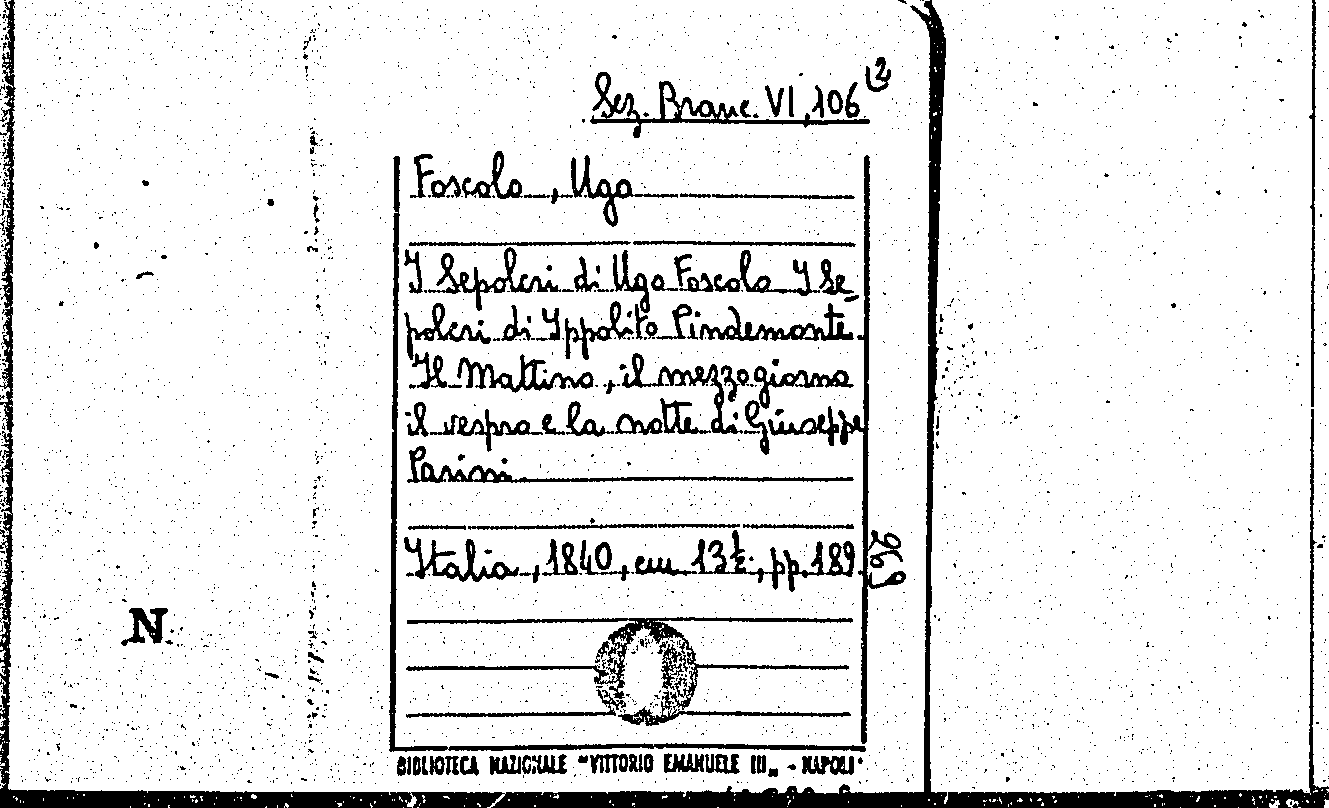 Sez. Branc. VI, 106 (2
Foscolo, Ugo
I Sepolcri di Ugo Foscolo I Se
polcri di Ippolito Pindemonte.
Il Mattino, il mezzogiorno
il vespro e la notte di Giuseppe
Parini.
Italia, 1840, cm. 13½, pp. 189.
269
N
BIBLIOTECA NAZIONALE "VITTORIO EMANUELE III„ - NAPOLI